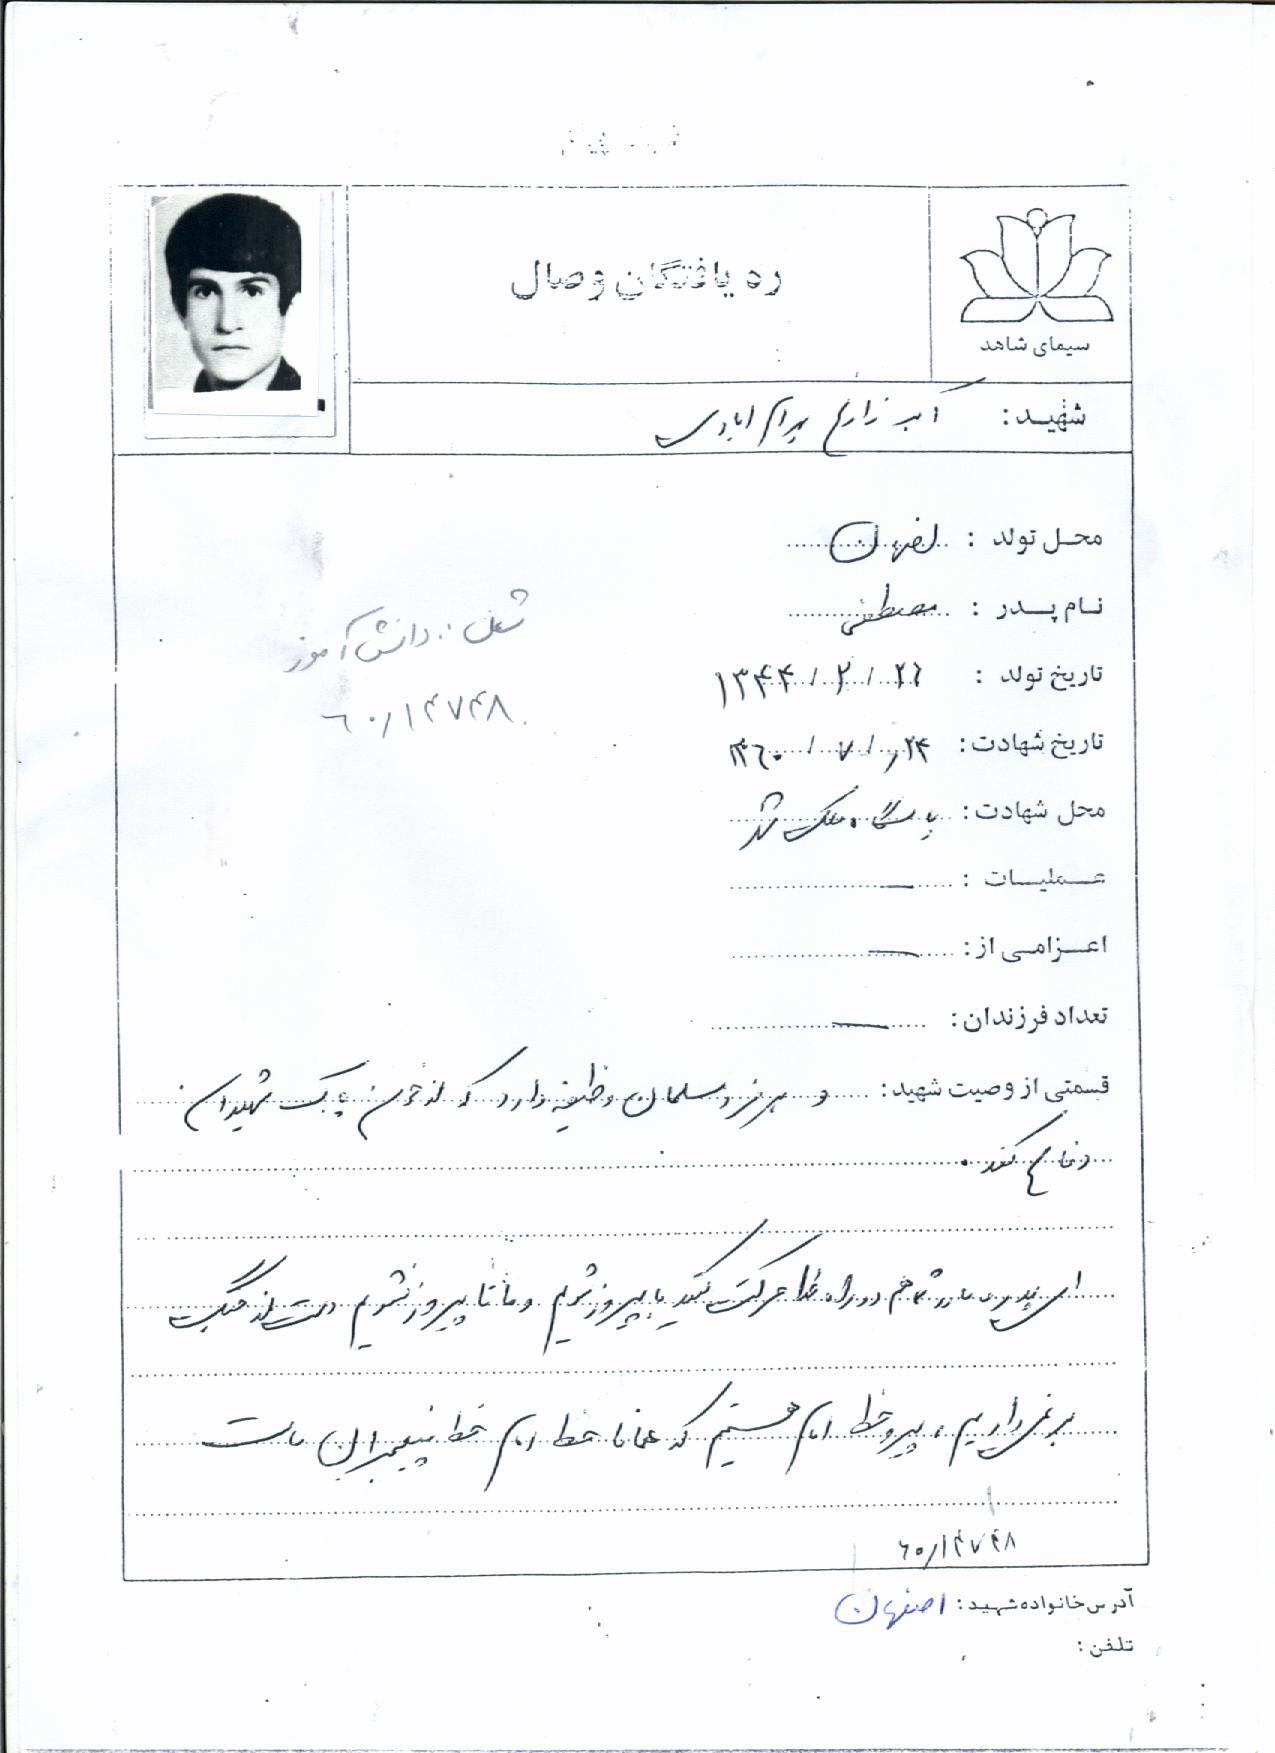 ره یافتگان وصال
سیمای شاهد
شهید: اکبر زارع بهرام آبادی
محل تولد : اصفهان
نام پدر : مصطفی
تاریخ تولد : ۲۶ / ۲ / ۱۳۴۴
شغل : دانش آموز
۶۰/۱۴۷۴۸
تاریخ شهادت: ۲۴ / ۷ / ۱۳۶۰
محل شهادت: پاسگاه ملک
عملیات : —
اعزامی از: —
تعداد فرزندان: —
قسمتی از وصیت شهید: و هر فرد مسلمان وظیفه دارد که از خون پاک شهیدان
دفاع کند.
ای پدر و مادر شما هم در راه خدا حرکت کنید یا پیروز شویم و ما تا پیروز نشویم دست از جنگ
بر نمی‌داریم، پیرو خط امام هستیم که همانا خط امام خط پیغمبر است
۶۰/۱۴۷۴۸
آدرس خانواده شهید: اصفهان
تلفن :